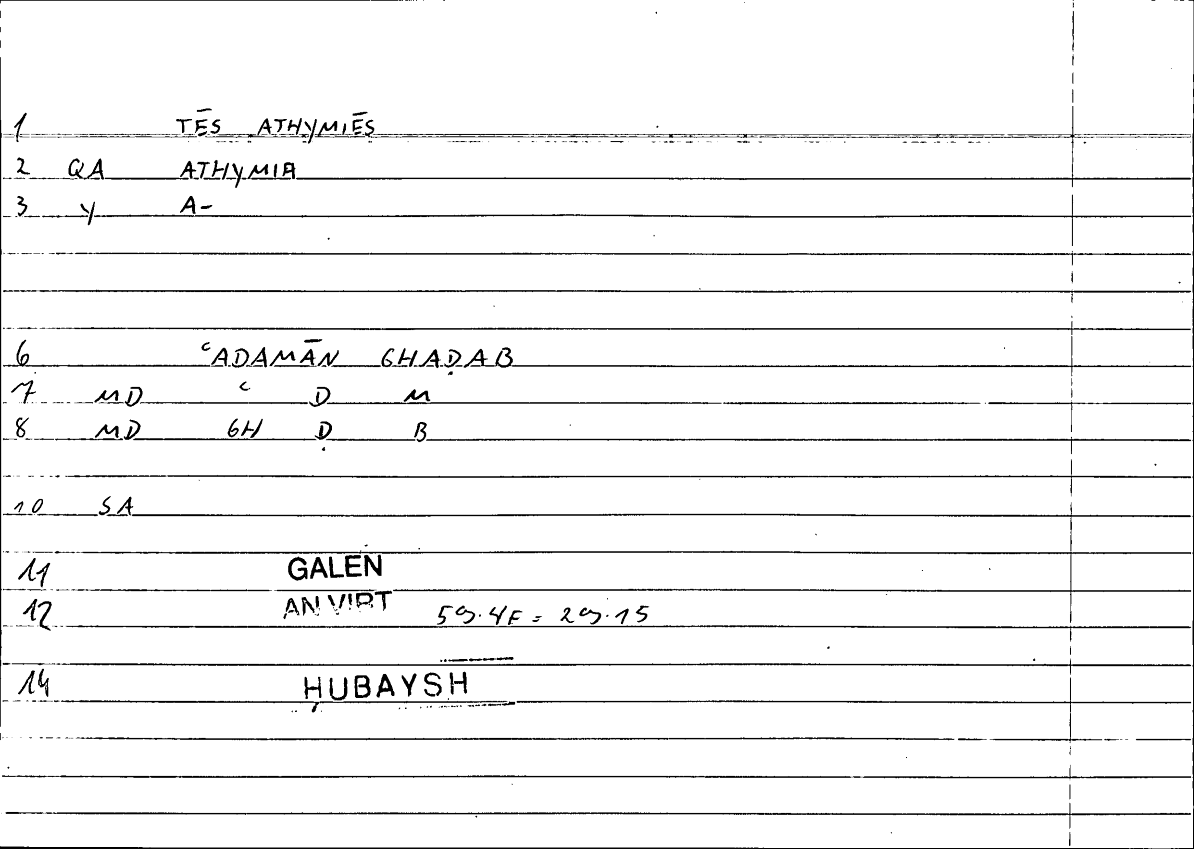 1 TĒS ATHYMIĒS
2 QA ATHYMIA
3 Y A-
6 ʿADAMĀN GHAḌAB
7 MD ʿ D M
8 MD GH Ḍ B
10 SA
11 GALEN
12 AN VIRT 59.4F = 29.15
14 ḤUBAYSH